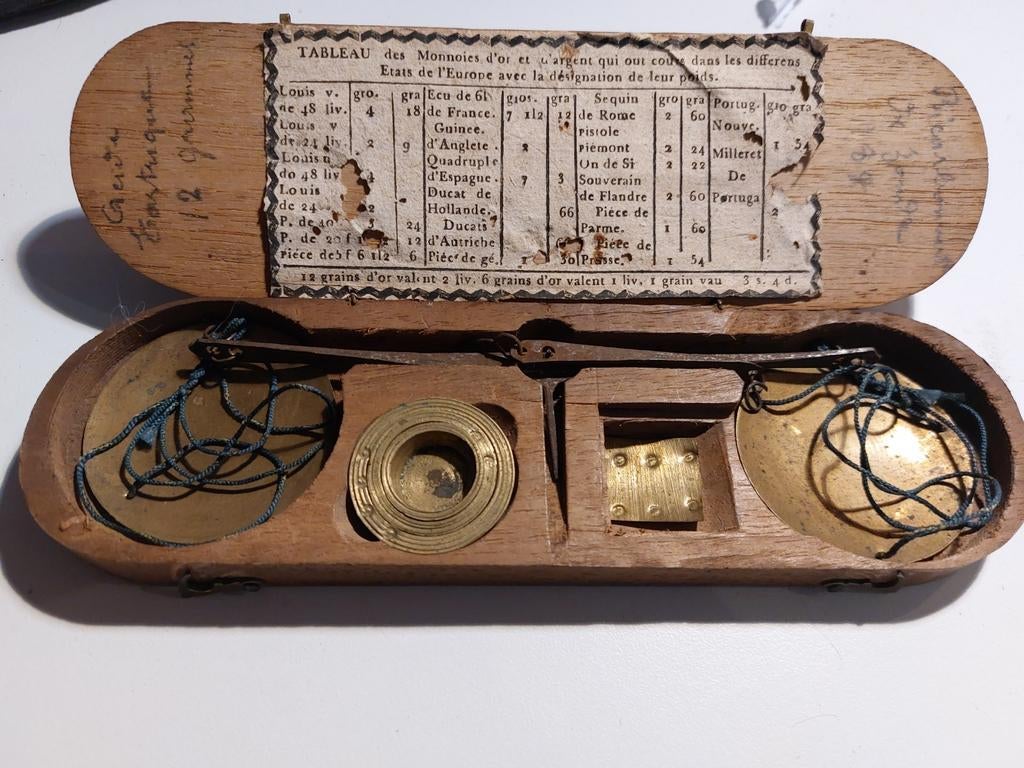 TABLEAU des Monnoies d'or et d'argent qui out cours dans les differens
Etats de l'Europe avec la désignation de leur poids.
Louis v. gro. gra
de 48 liv. 4 18
Louis v
de 24 liv. 2 9
Louis
do 48 liv
Louis
de 24 2
P. de 40 24
P. de 20 f 12
Piéce de 5 f 6 1|2 6
Ecu de 6l gros. gra
de France. 7 1|2 12
Guinee.
d'Anglete. 2
Quadruple
d'Espagne. 7 3
Ducat de
Hollande. 66
Ducats
d'Autriche
Piéc de gé. 1 30
Sequin gro gra
de Rome 2 60
Pistole
piémont 2 24
On de Si 2 22
Souverain
de Flandre 2 60
Piéce de
Parme. 1 60
Piéce de
Prusse. 1 54
Portug. gro gra
Nouve. 1 54
Milleret
De
Portuga
2
12 grains d'or valent 2 liv. 6 grains d'or valent 1 liv. 1 grain vau 3 s. 4 d.
12 grammes